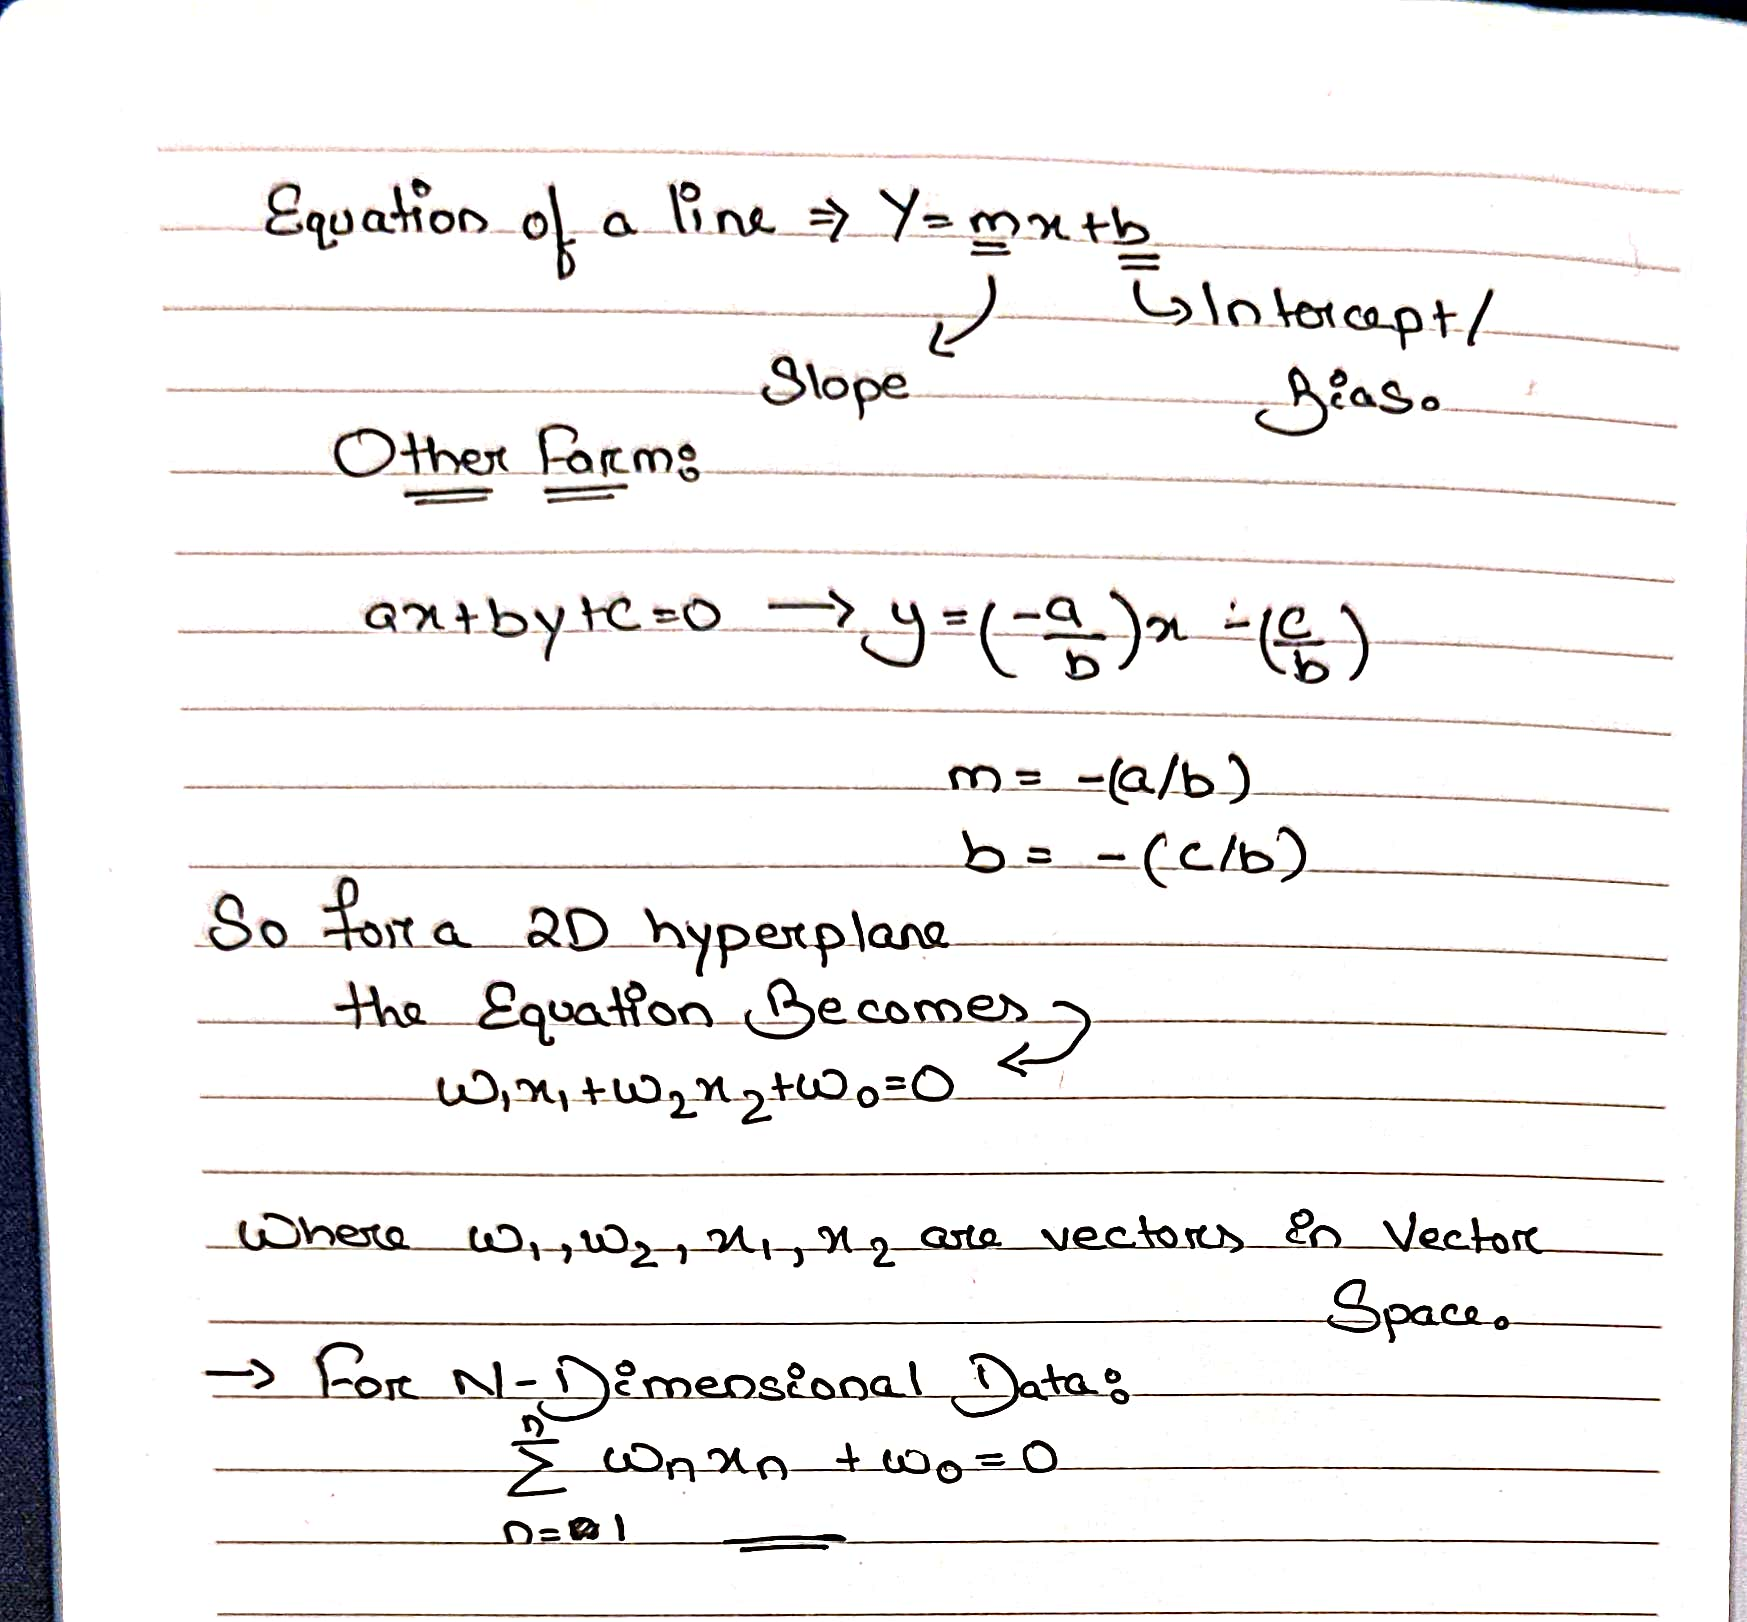 Equation of a line ⇒ Y = mx + b
↳ Intercept/
Slope
Bias.
Other Form:
ax + by + c = 0 → y = (-a/b)x - (c/b)
m = -(a/b)
b = -(c/b)
So for a 2D hyperplane
the Equation Becomes
w₁x₁ + w₂x₂ + w₀ = 0
Where w₁, w₂, x₁, x₂ are vectors in Vector
Space.
→ For N-Dimensional Data:
n
Σ wₙxₙ + w₀ = 0
n=1